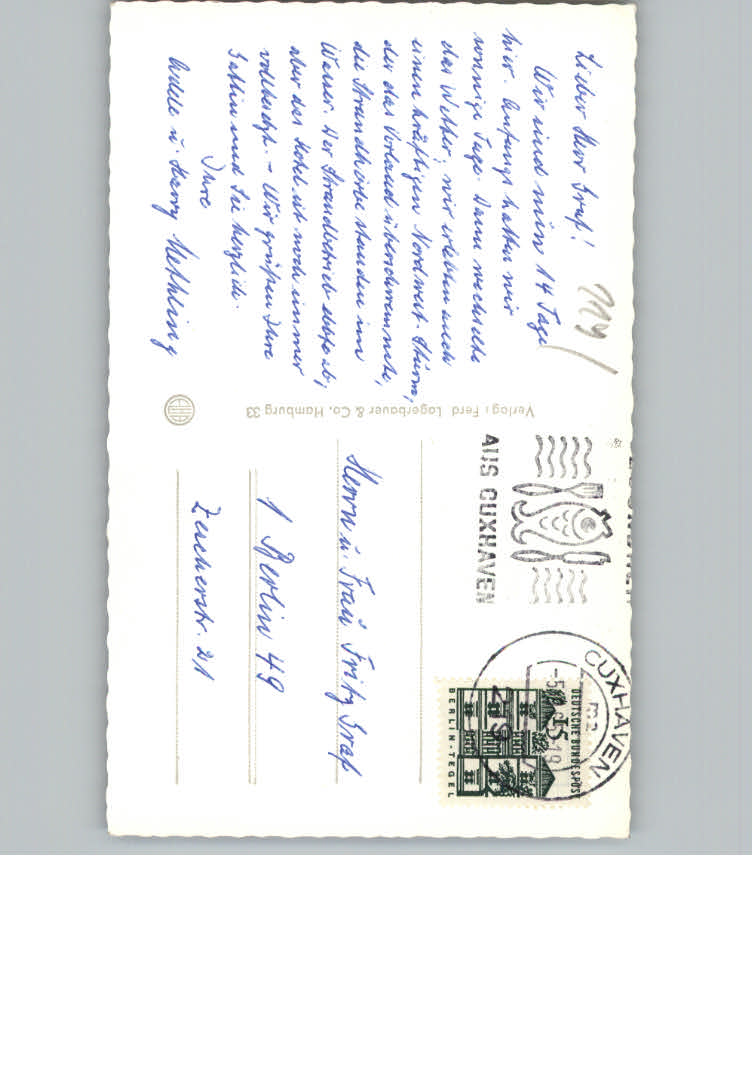 Lieber Herr Graf!
Wir sind nun 14 Tage
hier. Anfangs hatten wir
sonnige Tage. Dann wechselte
das Wetter, wir erlebten auch
einen kräftigen Nordwest-Sturm,
der das Vorland überschwemmte,
die Strandkörbe standen im
Wasser. Der Strandbetrieb ebbt ab,
aber das Hotel ist noch immer
vollbesetzt. – Wir grüßen Ihre
Gattin und Sie herzlich.
Ihre
u. Harry Methling
119/
Verlag: Ferd. Lagerbauer & Co. Hamburg 33
AUS CUXHAVEN
CUXHAVEN
219
mz
-5.
DEUTSCHE BUNDESPOST
15
BERLIN-TEGEL
Herrn u. Frau Fritz Graf
1 Berlin 49
Zescherstr. 21